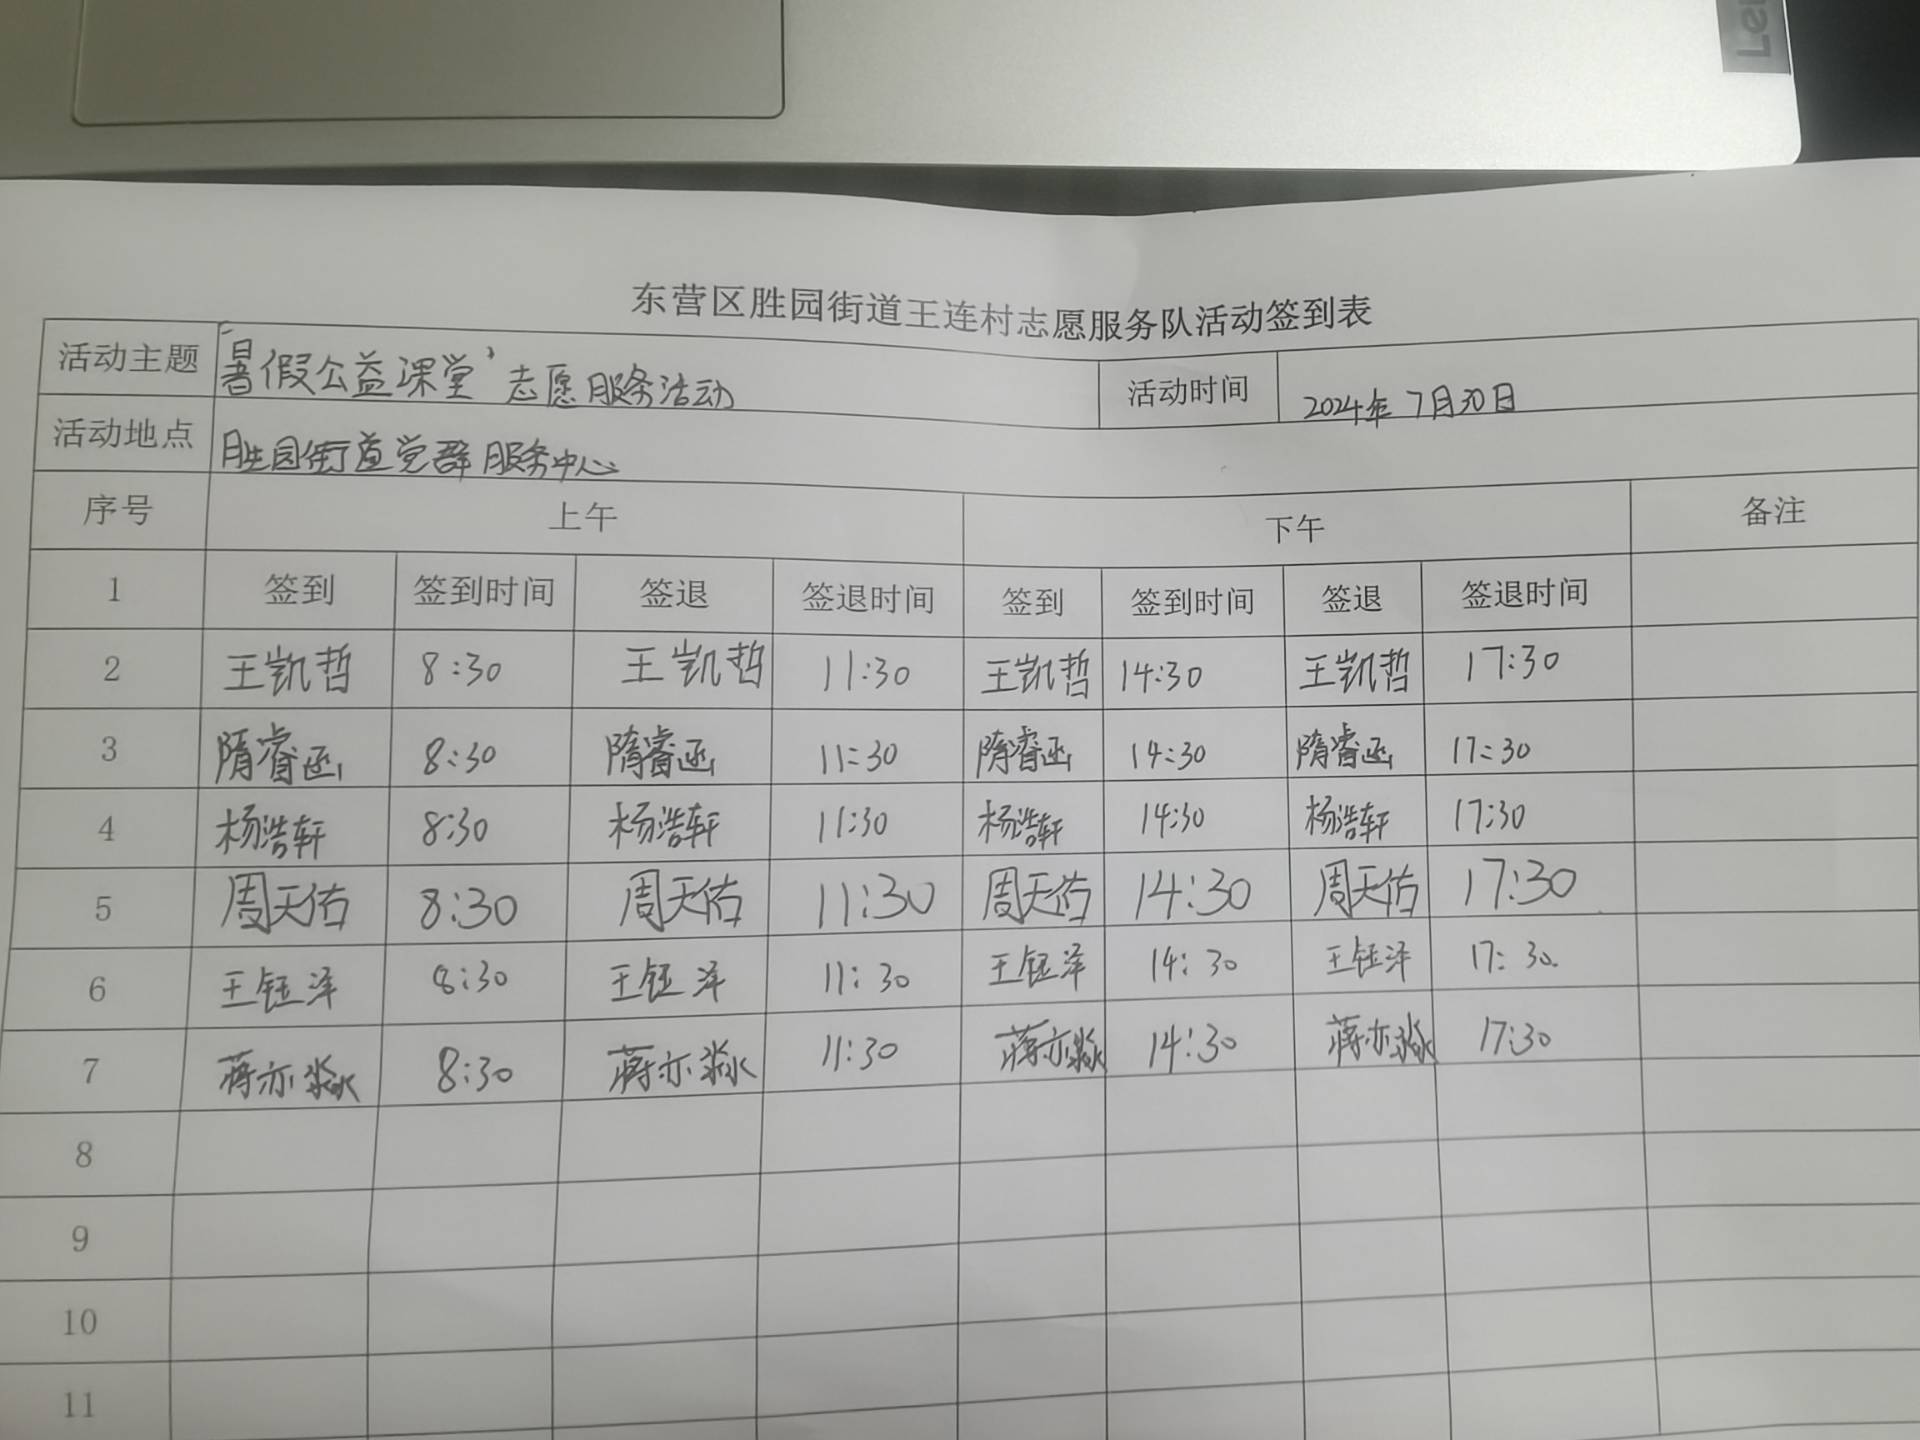 Len
东营区胜园街道王连村志愿服务队活动签到表
活动主题 “暑假公益课堂”志愿服务活动 活动时间 2024年7月30日
活动地点 胜园街道党群服务中心
序号 上午 下午 备注
1 签到 签到时间 签退 签退时间 签到 签到时间 签退 签退时间
2 王凯哲 8:30 王凯哲 11:30 王凯哲 14:30 王凯哲 17:30
3 隋睿函 8:30 隋睿函 11:30 隋睿函 14:30 隋睿函 17:30
4 杨浩轩 8:30 杨浩轩 11:30 杨浩轩 14:30 杨浩轩 17:30
5 周天佑 8:30 周天佑 11:30 周天佑 14:30 周天佑 17:30
6 王钰泽 8:30 王钰泽 11:30 王钰泽 14:30 王钰泽 17:30
7 蒋亦淼 8:30 蒋亦淼 11:30 蒋亦淼 14:30 蒋亦淼 17:30
8
9
10
11